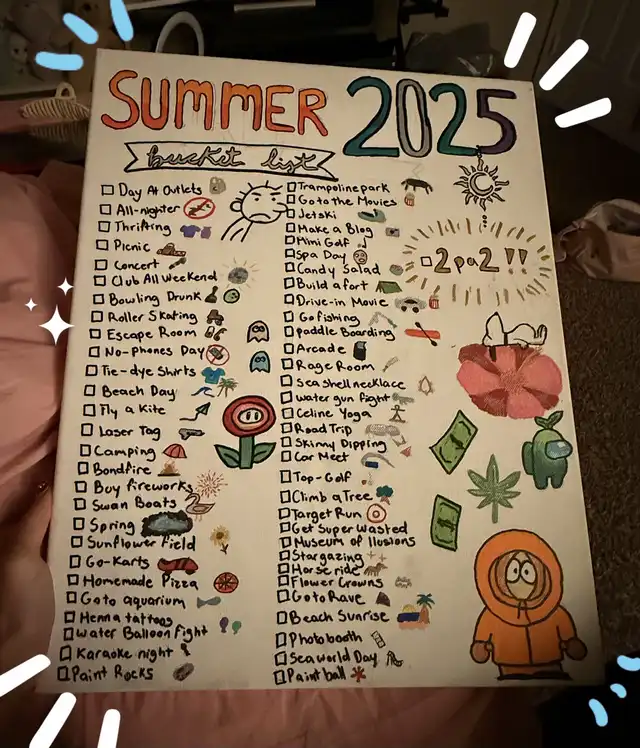 SUMMER 2025
bucket list
Day At Outlets
All-nighter
Thrifting
Picnic
Concert
Club All Weekend
Bowling Drunk
Roller Skating
Escape Room
No-Phones Day
Tie-dye Shirts
Beach Day
Fly a Kite
Laser Tag
Camping
Bondfire
Buy Fireworks
Swan Boats
Spring
Sunflower Field
Go-Karts
Homemade Pizza
Go to aquarium
Henna tattoos
Water Balloon Fight
Karaoke night
Paint Rocks
Trampoline park
Go to the Movies
Jetski
Make a Blog
Mini Golf
Spa Day
Candy Salad
Build a fort
Drive-in Movie
Go fishing
Paddle Boarding
Arcade
Rage Room
Sea shell necklace
Water gun fight
Celine Yoga
Road Trip
Skinny Dipping
Car Meet
Top-Golf
Climb a Tree
Target Run
Get Super Wasted
Museum of Illusions
Stargazing
Horse ride
Flower Crowns
Go to Rave
Beach Sunrise
Photobooth
Sea world Day
Paint ball
2 pa 2 !!